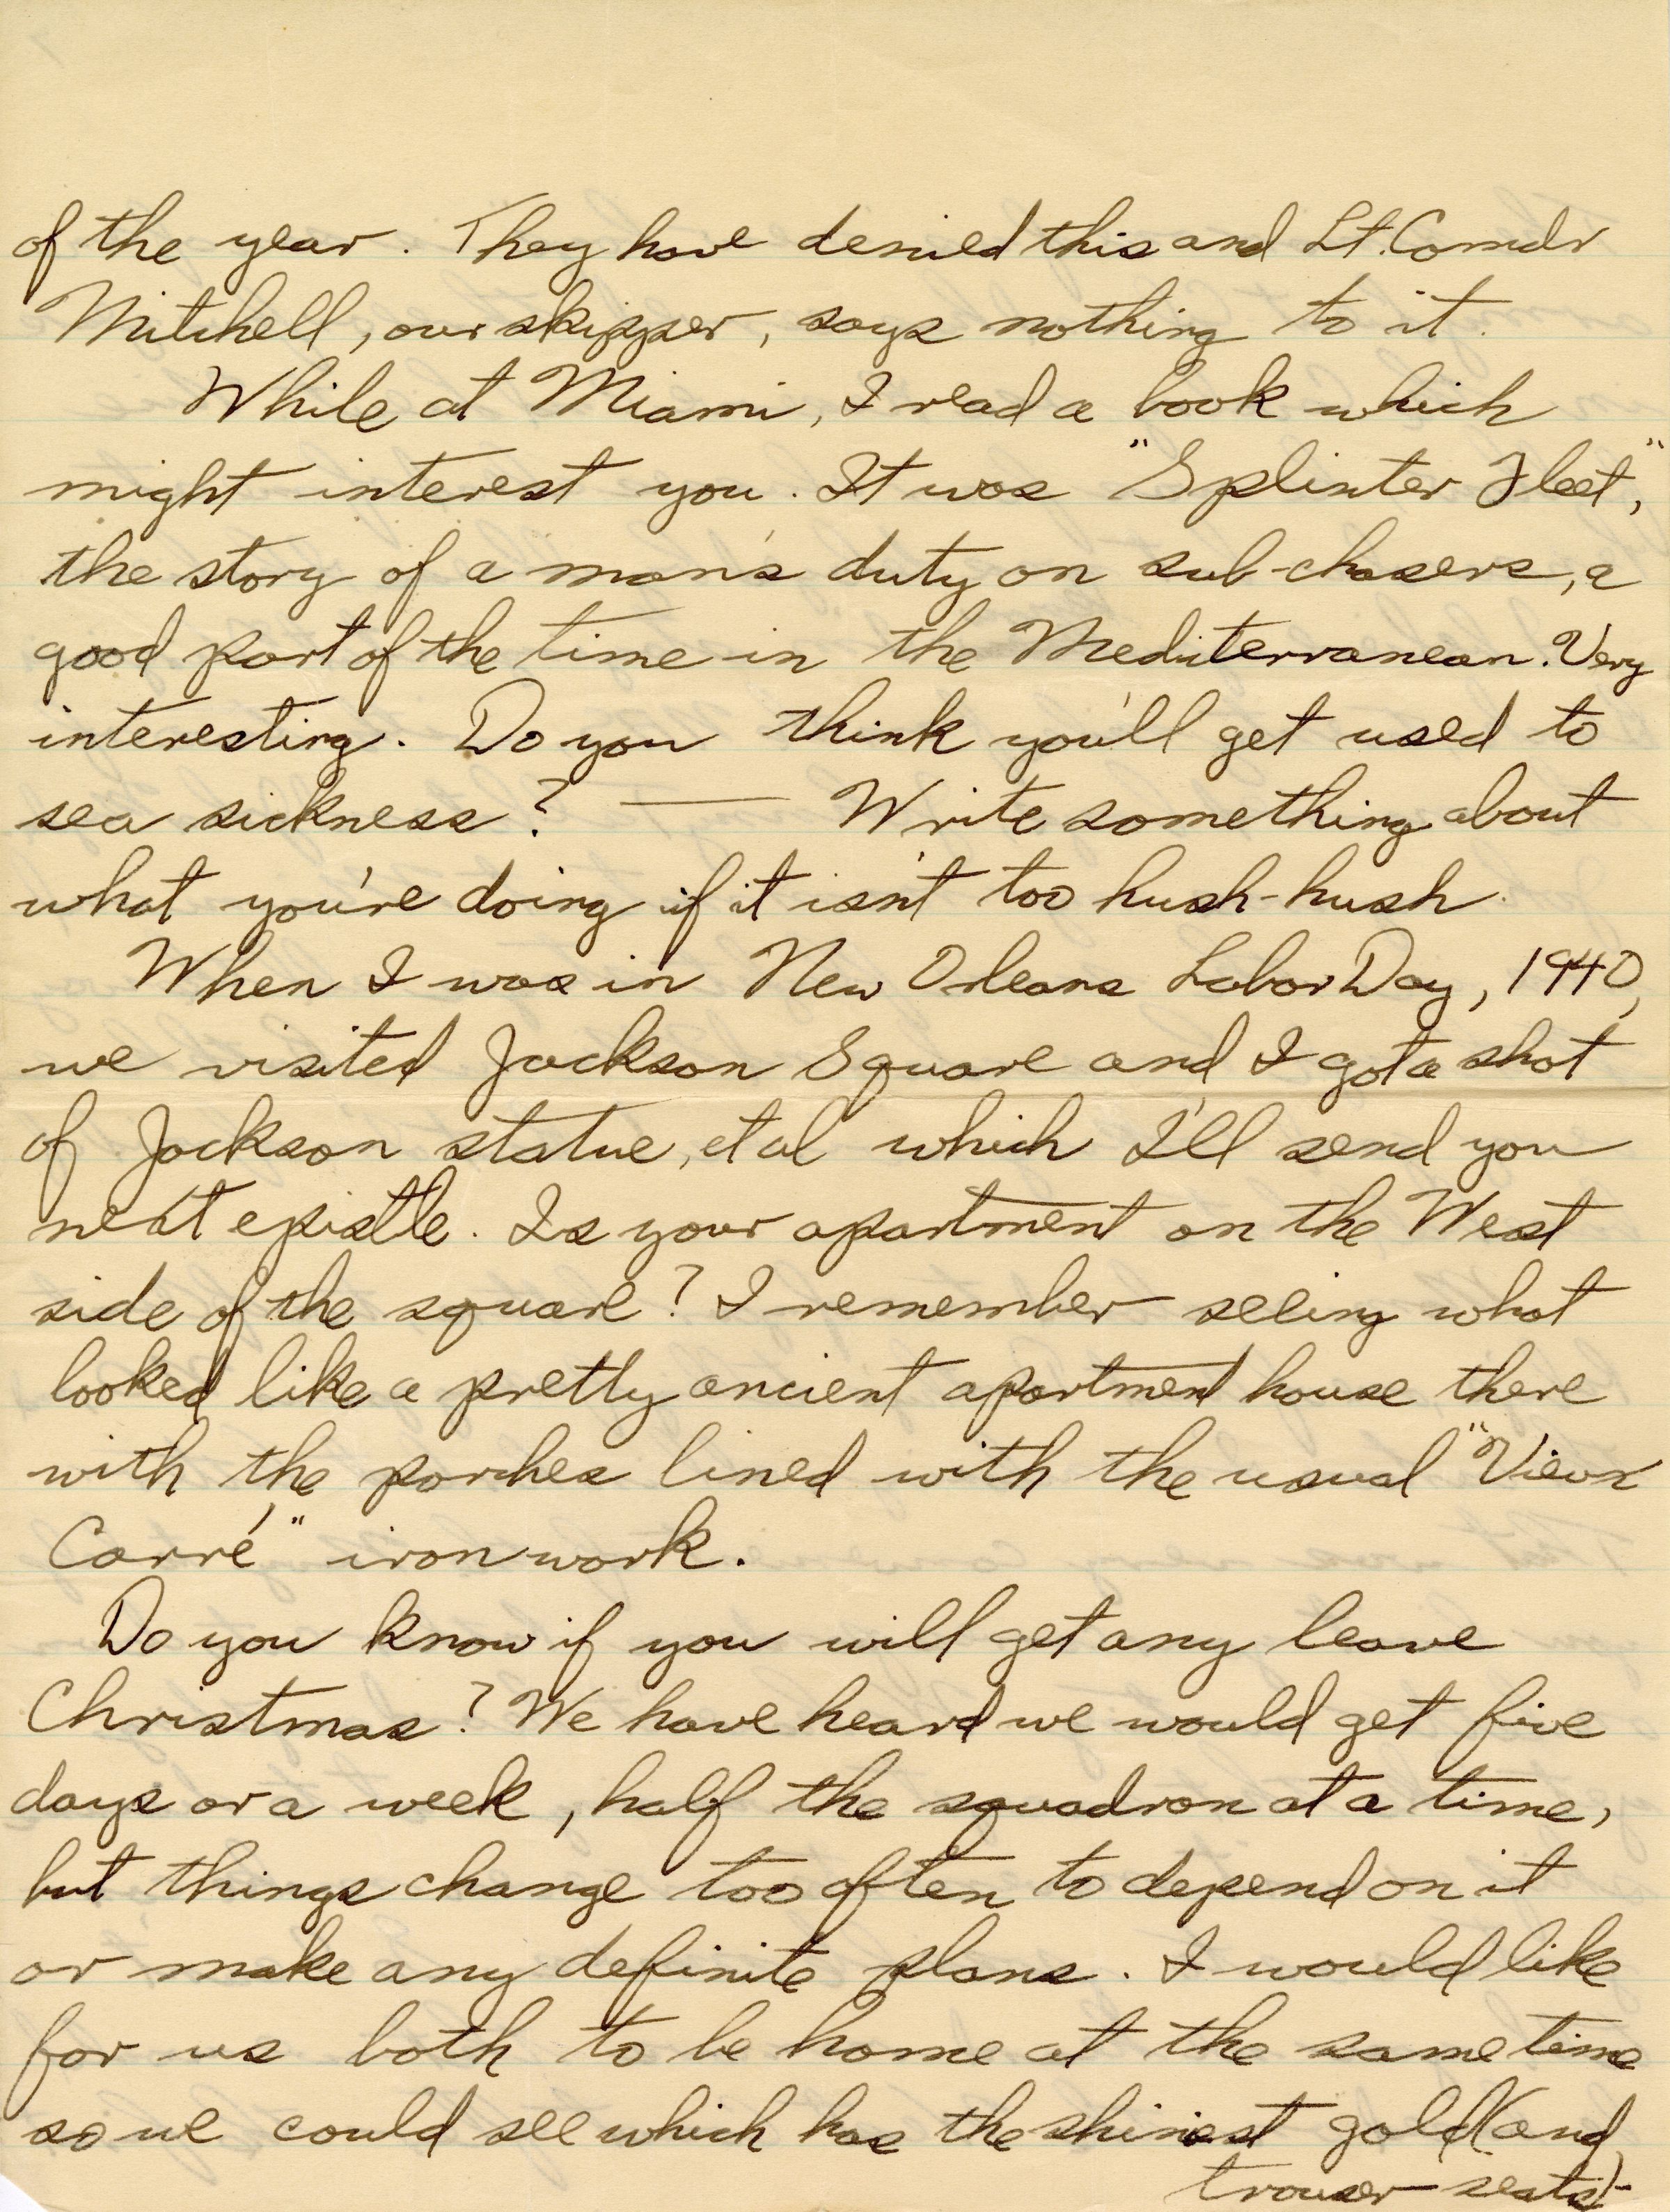 of the year. They have denied this and Lt. Comdr
Mitchell, our skipper, says nothing to it.
While at Miami, I read a book which
might interest you. It was "Splinter Fleet,"
the story of a man's duty on sub-chasers, a
good part of the time in the Mediterranean. Very
interesting. Do you think you'll get used to
sea sickness? — Write something about
what you're doing if it isn't too hush-hush.
When I was in New Orleans Labor Day, 1940,
we visited Jackson Square and I got a shot
of Jackson statue, et al which I'll send you
next epistle. Is your apartment on the West
side of the square? I remember seeing what
looked like a pretty ancient apartment house there
with the porches lined with the usual "Vieux
Carré" iron work.
Do you know if you will get any leave
Christmas? We have heard we would get five
days or a week, half the squadron at a time,
but things change too often to depend on it
or make any definite plans. I would like
for us both to be home at the same time
so we could see which has the shiniest gold (and
trouser seats)-